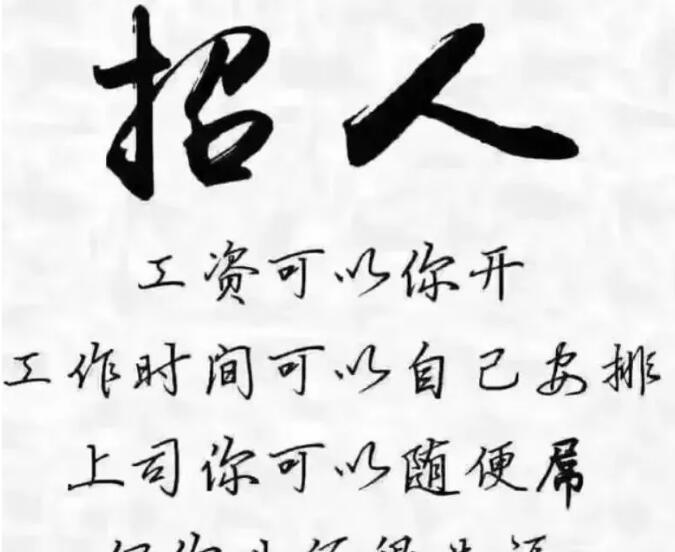 招人
工资可以你开
工作时间可以自己安排
上司你可以随便屌